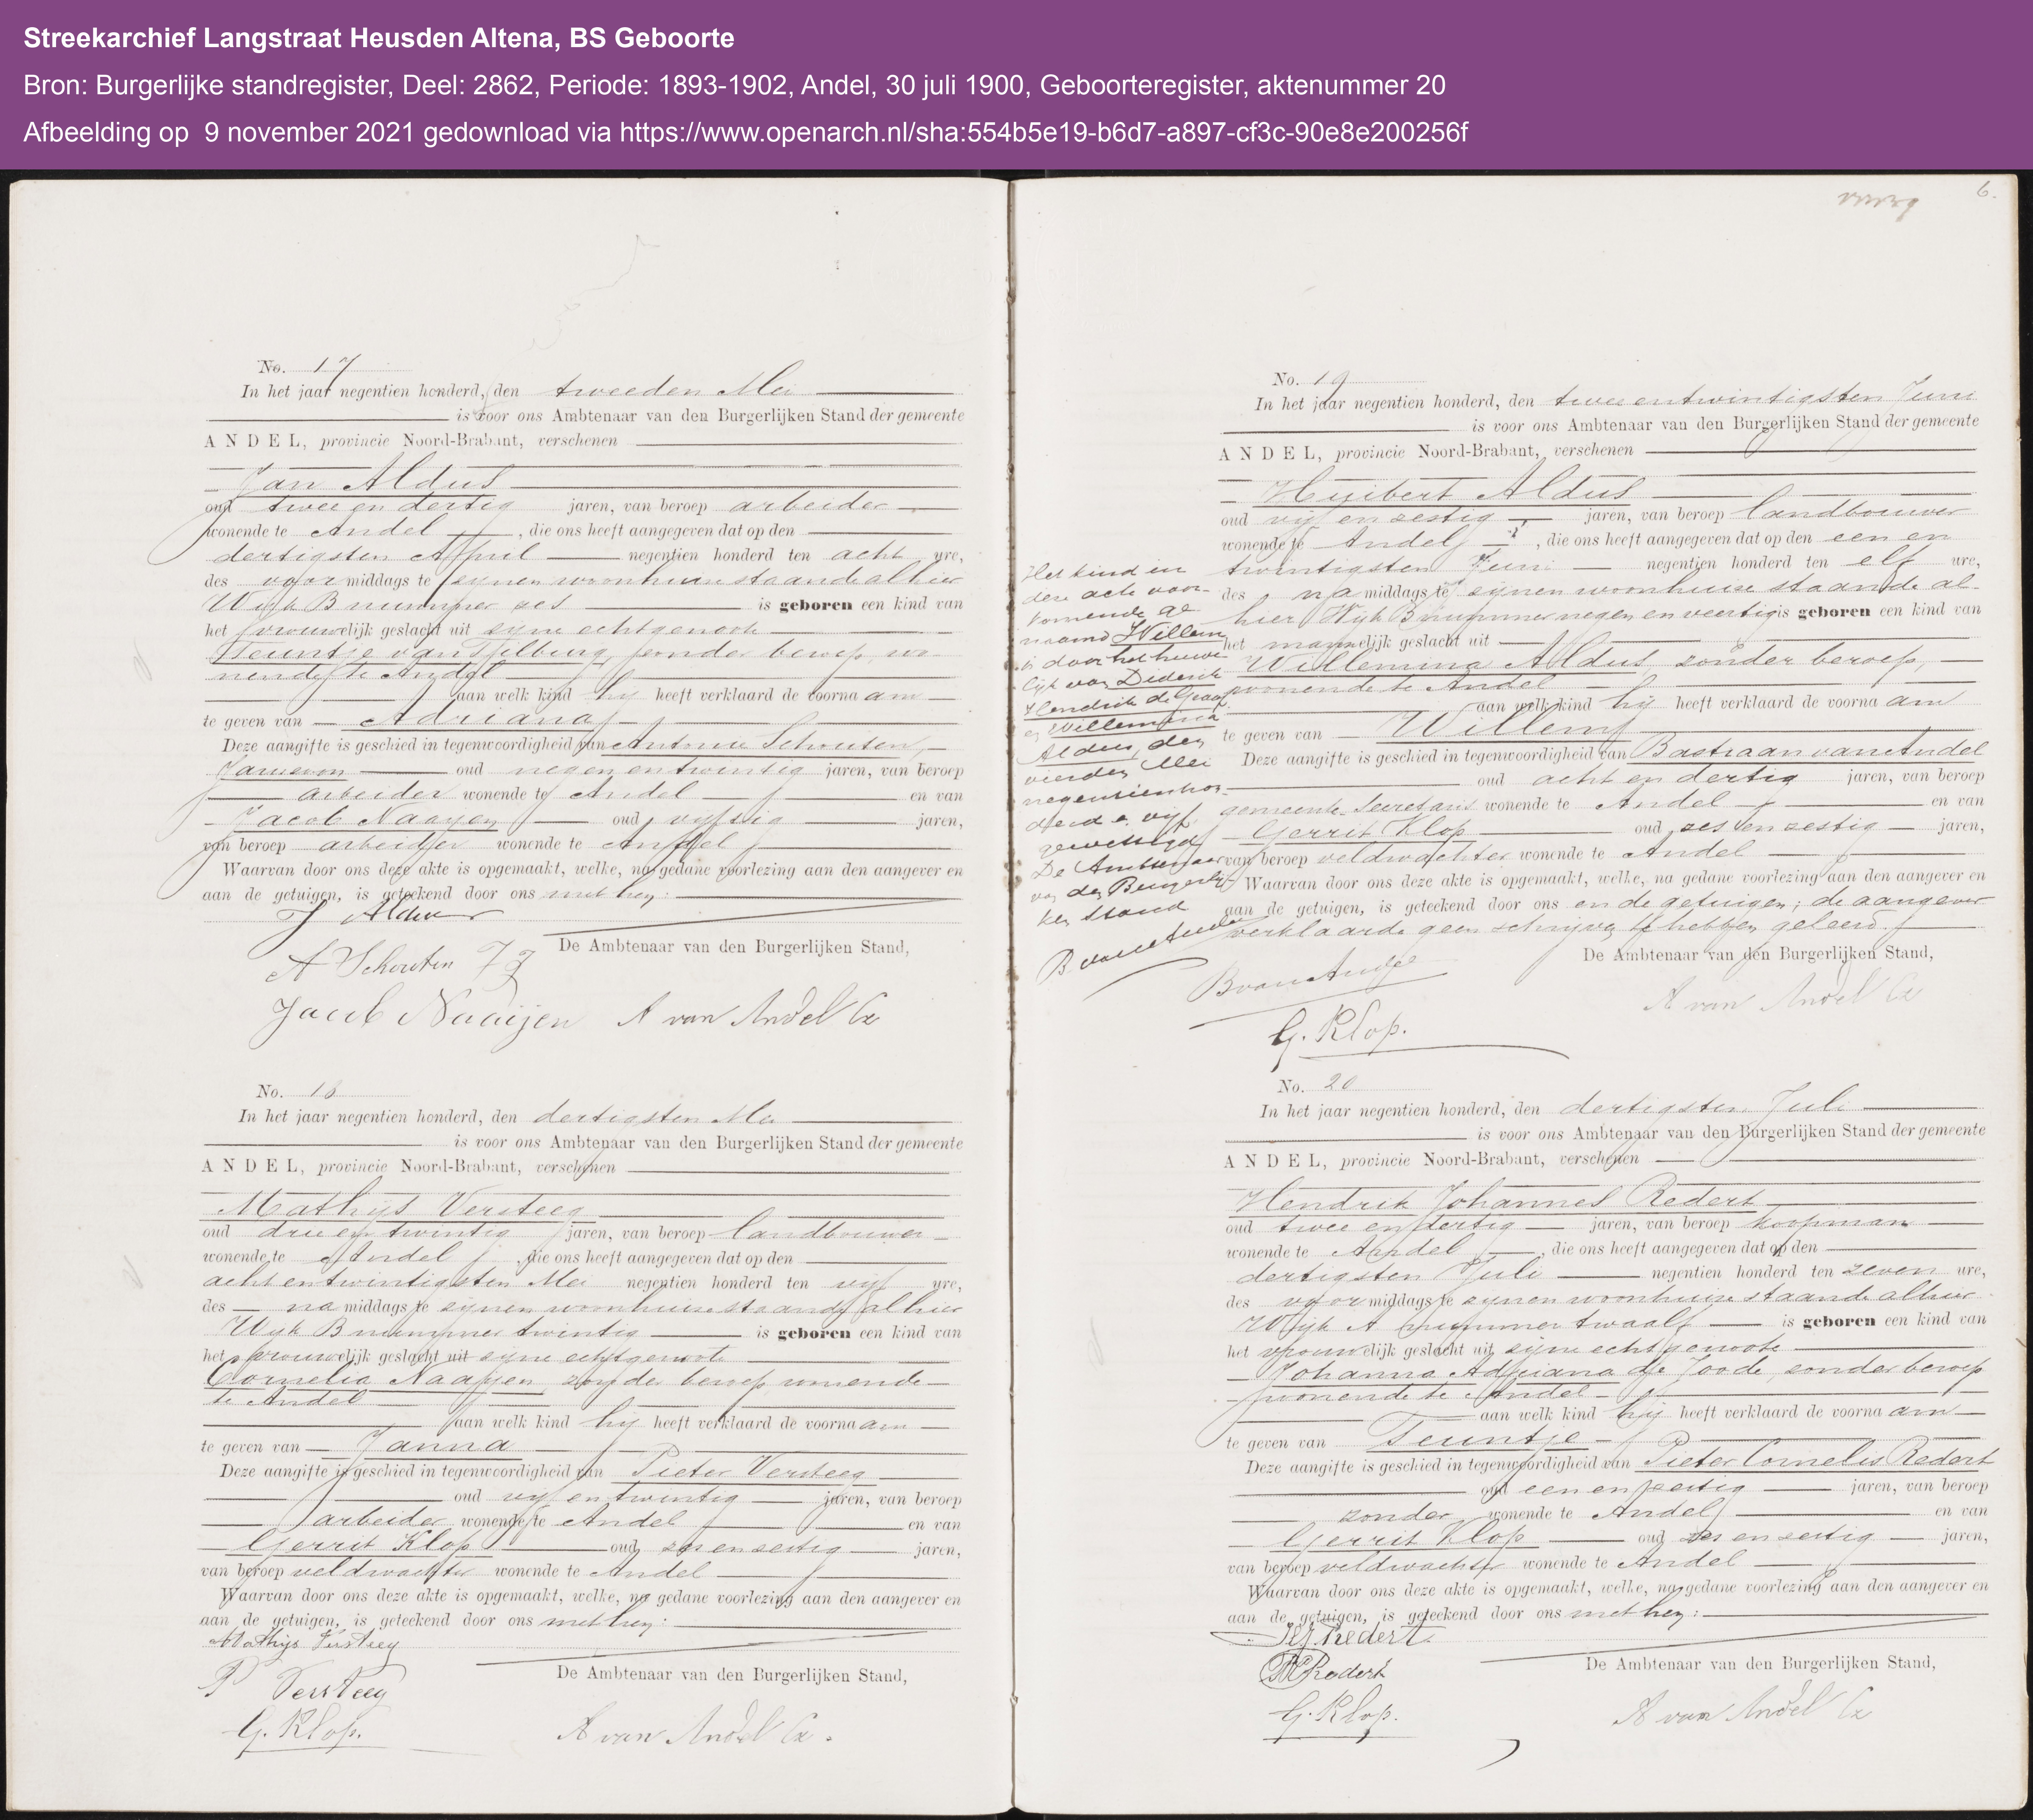 Streekarchief Langstraat Heusden Altena, BS Geboorte
Bron: Burgerlijke standregister, Deel: 2862, Periode: 1893-1902, Andel, 30 juli 1900, Geboorteregister, aktenummer 20
Afbeelding op 9 november 2021 gedownload via https://www.openarch.nl/sha:554b5e19-b6d7-a897-cf3c-90e8e200256f
No. 17
In het jaar negentien honderd, den tweeden Mei
is voor ons Ambtenaar van den Burgerlijken Stand der gemeente
ANDEL, provincie Noord-Brabant, verschenen
Jan Aldus
oud twee en dertig jaren, van beroep arbeider
wonende te Andel, die ons heeft aangegeven dat op den
dertigsten April negentien honderd ten acht ure,
des voormiddags te zijnen woonhuize staande alhier
Wijk B nummer zes is geboren een kind van
het vrouwelijk geslacht uit zijne echtgenoote
Teuntje van Tilburg, zonder beroep, wo-
nende te Andel
aan welk kind hij heeft verklaard de voornaam
te geven van Adriana
Deze aangifte is geschied in tegenwoordigheid van Antonie Schouten,
Janszoon oud negen en twintig jaren, van beroep
arbeider wonende te Andel en van
Jacob Naayen oud vijftig jaren,
van beroep arbeider wonende te Andel
Waarvan door ons deze akte is opgemaakt, welke, na gedane voorlezing aan den aangever en
aan de getuigen, is geteekend door ons met hen:
J Aldus
De Ambtenaar van den Burgerlijken Stand,
A Schouten Jz
Jacob Naaijen A van Andel Cz
No. 18
In het jaar negentien honderd, den dertigsten Mei
is voor ons Ambtenaar van den Burgerlijken Stand der gemeente
ANDEL, provincie Noord-Brabant, verschenen
Mathijs Versteeg
oud drie en twintig jaren, van beroep landbouwer
wonende te Andel, die ons heeft aangegeven dat op den
acht en twintigsten Mei negentien honderd ten vijf ure,
des namiddags te zijnen woonhuize staande alhier
Wijk B nummer twintig is geboren een kind van
het vrouwelijk geslacht uit zijne echtgenoote
Cornelia Naayen, zonder beroep, wonende
te Andel
aan welk kind hij heeft verklaard de voornaam
te geven van Janna
Deze aangifte is geschied in tegenwoordigheid van Pieter Versteeg
oud vijf en twintig jaren, van beroep
arbeider wonende te Andel en van
Gerrit Klop oud zes en zestig jaren,
van beroep veldwachter wonende te Andel
Waarvan door ons deze akte is opgemaakt, welke, na gedane voorlezing aan den aangever en
aan de getuigen, is geteekend door ons met hen:
Mathijs Versteeg
De Ambtenaar van den Burgerlijken Stand,
P Versteeg
G. Klop.
A van Andel Cz.
6.
No. 19
In het jaar negentien honderd, den twee en twintigsten Juni
is voor ons Ambtenaar van den Burgerlijken Stand der gemeente
ANDEL, provincie Noord-Brabant, verschenen
Huibert Aldus
oud vijf en zestig jaren, van beroep landbouwer
wonende te Andel, die ons heeft aangegeven dat op den een en
twintigsten Juni negentien honderd ten elf ure,
des namiddags te zijnen woonhuize staande al-
hier Wijk B nummer negen en veertig is geboren een kind van
het mannelijk geslacht uit
Willemina Aldus, zonder beroep,
wonende te Andel
aan welk kind hij heeft verklaard de voornaam
te geven van Willem
Deze aangifte is geschied in tegenwoordigheid van Bastiaan van Andel
oud acht en dertig jaren, van beroep
gemeente Secretaris wonende te Andel en van
Gerrit Klop oud zes en zestig jaren,
van beroep veldwachter wonende te Andel
Waarvan door ons deze akte is opgemaakt, welke, na gedane voorlezing aan den aangever en
aan de getuigen, is geteekend door ons en de getuigen; de aangever
verklaarde geen schrijven te hebben geleerd.
De Ambtenaar van den Burgerlijken Stand,
B van Andel
A van Andel Cz
G. Klop.
Het kind in
deze acte voor-
komende ge-
naamd Willem
is door het huwe
lijk van Diderik
Hendrik de Graaf
en Willemina
Aldus, den
vierden Mei
negentienhon-
derd en vijf
gewettigd
De Ambtenaar
van den Burgerlij-
ken Stand
B van Andel
No. 20
In het jaar negentien honderd, den dertigsten Juli
is voor ons Ambtenaar van den Burgerlijken Stand der gemeente
ANDEL, provincie Noord-Brabant, verschenen
Hendrik Johannes Redert
oud twee en dertig jaren, van beroep koopman
wonende te Andel, die ons heeft aangegeven dat op den
dertigsten Juli negentien honderd ten zeven ure,
des voormiddags te zijnen woonhuize staande alhier
Wijk A nummer twaalf is geboren een kind van
het vrouwelijk geslacht uit zijne echtgenoote
Johanna Adriana de Joode, zonder beroep
wonende te Andel
aan welk kind hij heeft verklaard de voornaam
te geven van Teuntje
Deze aangifte is geschied in tegenwoordigheid van Pieter Cornelis Redert
oud een en zestig jaren, van beroep
zonder wonende te Andel en van
Gerrit Klop oud zes en zestig jaren,
van beroep veldwachter wonende te Andel
Waarvan door ons deze akte is opgemaakt, welke, na gedane voorlezing aan den aangever en
aan de getuigen, is geteekend door ons met hen:
HJ Redert
De Ambtenaar van den Burgerlijken Stand,
PC Redert
G. Klop.
A van Andel Cz